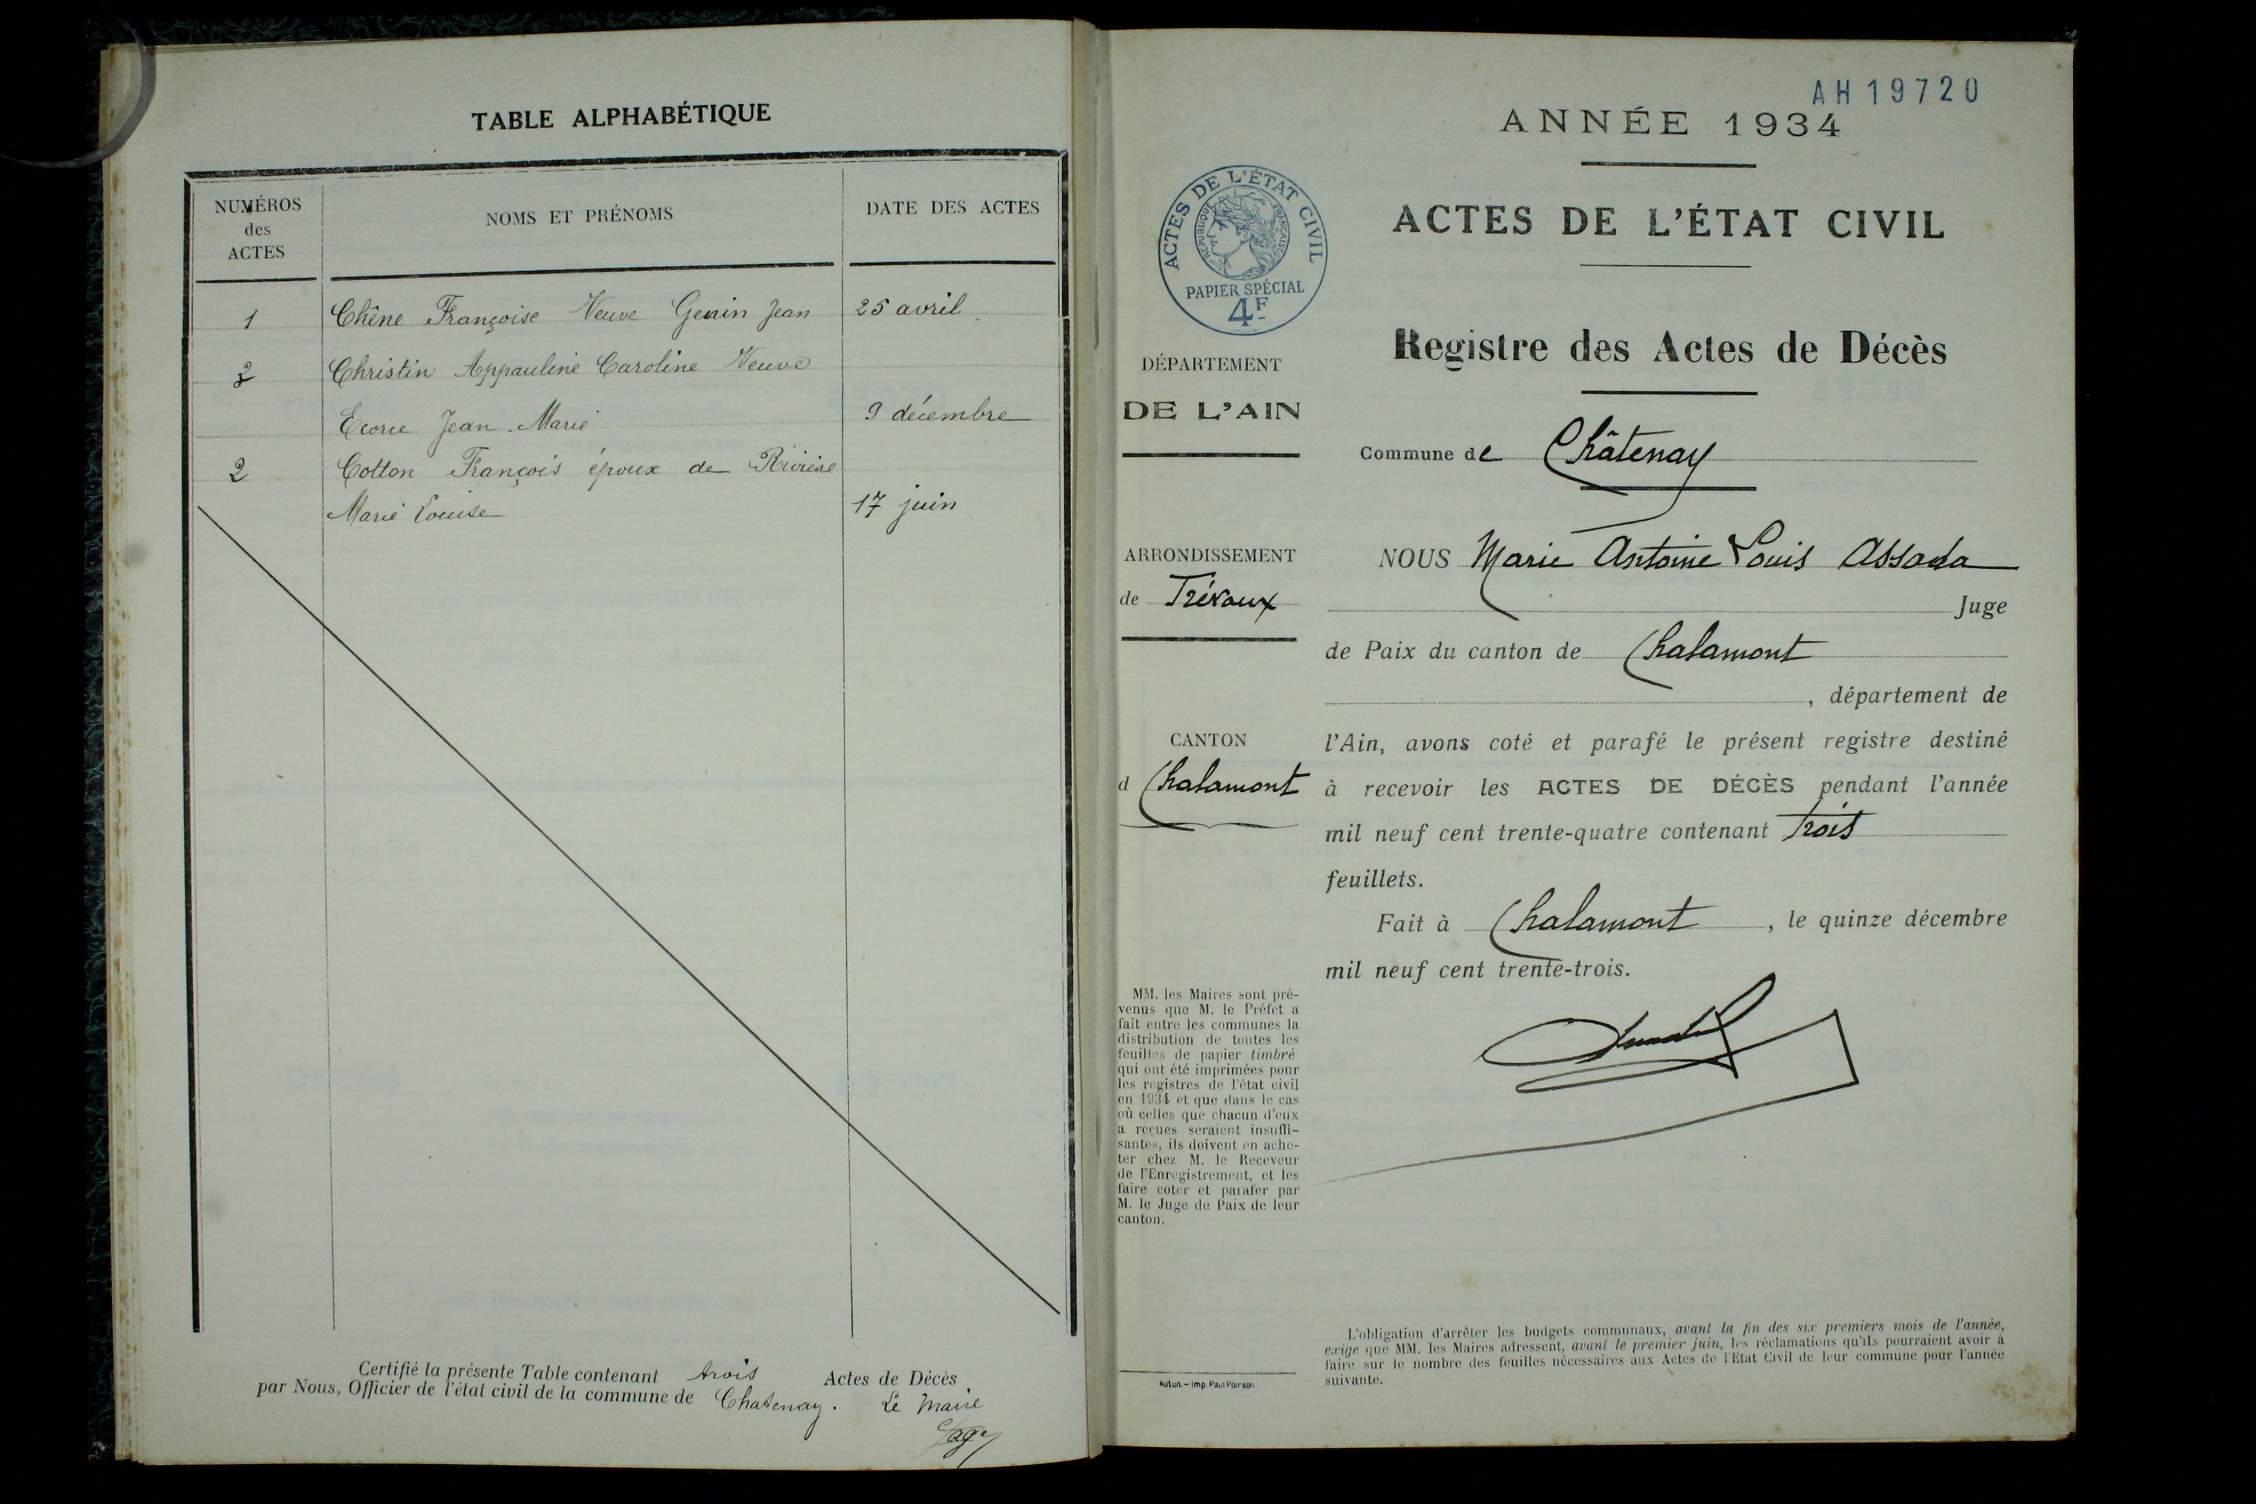 TABLE ALPHABÉTIQUE
NUMÉROS
des
ACTES
NOMS ET PRÉNOMS
DATE DES ACTES
1 Chêne Françoise Veuve Genin Jean 25 avril
3 Christin Appauline Caroline Veuve
Ecorce Jean-Marie 9 décembre
2 Cotton François époux de Rivière
Marie Louise 17 juin
Certifié la présente Table contenant trois Actes de Décès
par Nous, Officier de l'état civil de la commune de Chatenay. Le Maire
AH 19720
ANNÉE 1934
ACTES DE L'ÉTAT CIVIL
RÉPUBLIQUE FRANÇAISE
PAPIER SPÉCIAL
4F
ACTES DE L'ÉTAT CIVIL
Registre des Actes de Décès
DÉPARTEMENT
DE L'AIN
Commune de Châtenay
ARRONDISSEMENT
de Trévoux
NOUS Marie Antoine Louis Assada
Juge
de Paix du canton de Chalamont
, département de
CANTON
d Chalamont
l'Ain, avons coté et parafé le présent registre destiné
à recevoir les ACTES DE DÉCÈS pendant l'année
mil neuf cent trente-quatre contenant trois
feuillets.
Fait à Chalamont, le quinze décembre
mil neuf cent trente-trois.
MM. les Maires sont pré-
venus que M. le Préfet a
fait entre les communes la
distribution de toutes les
feuilles de papier timbré
qui ont été imprimées pour
les registres de l'état civil
en 1934 et que dans le cas
où celles que chacun d'eux
a reçues seraient insuffi-
santes, ils doivent en ache-
ter chez M. le Receveur
de l'Enregistrement, et les
faire coter et parafer par
M. le Juge de Paix de leur
canton.
Autun. – Imp. Paul Poirson
L'obligation d'arrêter les budgets communaux, avant la fin des six premiers mois de l'année,
exige que MM. les Maires adressent, avant le premier juin, les réclamations qu'ils pourraient avoir à
faire sur le nombre des feuilles nécessaires aux Actes de l'Etat Civil de leur commune pour l'année
suivante.